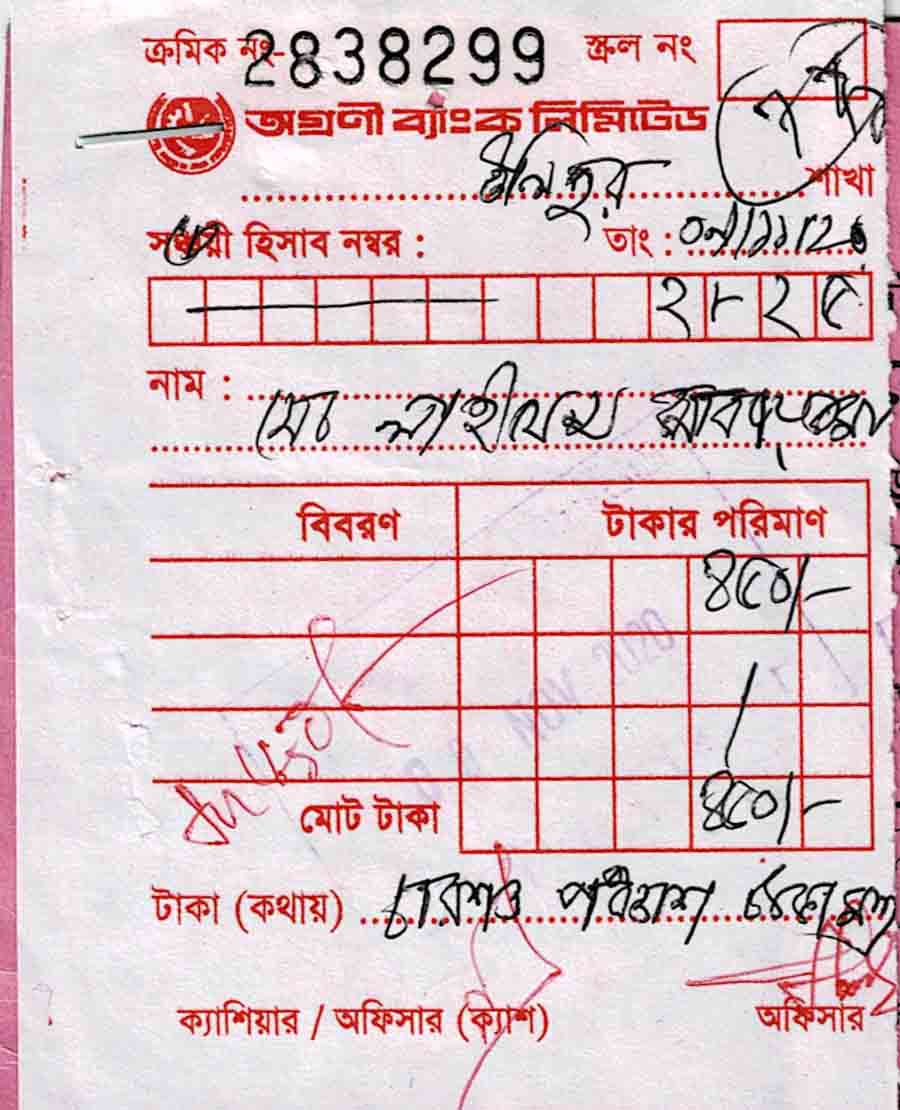 ক্রমিক নং- 2838299 স্ক্রল নং
অগ্রণী ব্যাংক লিমিটেড
শাখা
সঞ্চয়ী হিসাব নম্বর : তাং :
২৮২৫
নাম :
মো
বিবরণ টাকার পরিমাণ
৪৫০/-
NOV 2020
মোট টাকা ৪৫০/-
টাকা (কথায়) চারশত পঞ্চাশ টাকা মাত্র
ক্যাশিয়ার / অফিসার (ক্যাশ) অফিসার